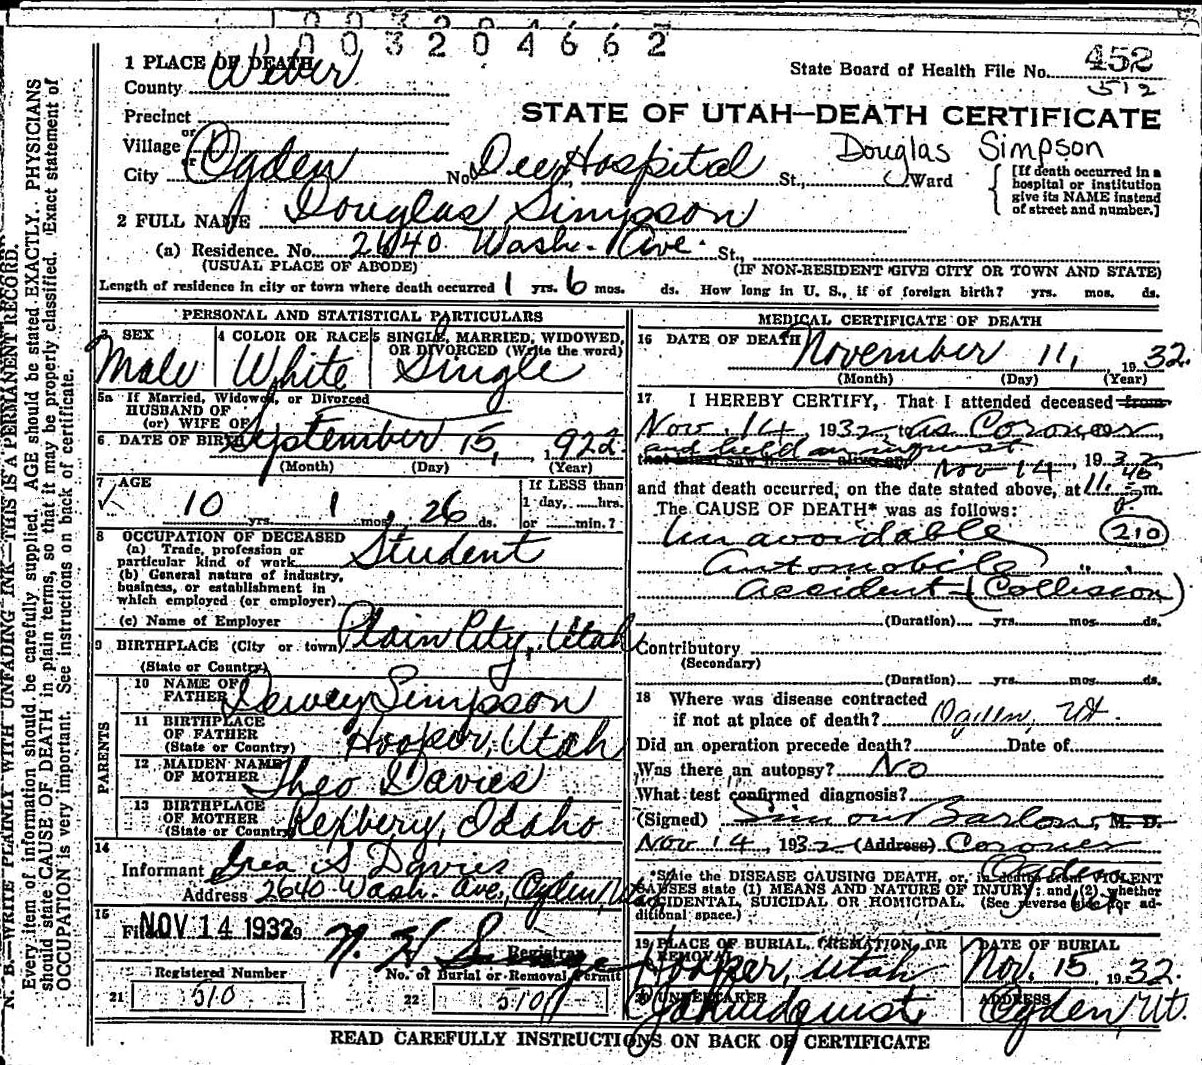 1 0 0 3 2 0 4 6 6 2
1 PLACE OF DEATH
County Weber
State Board of Health File No. 452
512
STATE OF UTAH—DEATH CERTIFICATE
Precinct
or
Village
or
City Ogden No. Dee Hospital St., Ward
Douglas Simpson
[If death occurred in a hospital or institution give its NAME instead of street and number.]
2 FULL NAME Douglas Simpson
(a) Residence. No. 2640 Wash. Ave. St.,
(USUAL PLACE OF ABODE) (IF NON-RESIDENT GIVE CITY OR TOWN AND STATE)
Length of residence in city or town where death occurred 1 yrs. 6 mos. ds. How long in U. S., if of foreign birth? yrs. mos. ds.
PERSONAL AND STATISTICAL PARTICULARS
3 SEX Male
4 COLOR OR RACE White
5 SINGLE, MARRIED, WIDOWED, OR DIVORCED (Write the word) Single
5a If Married, Widowed, or Divorced
HUSBAND OF
(or) WIFE OF
6. DATE OF BIRTH September 15, 1922
(Month) (Day) (Year)
7 AGE
10 yrs. 1 mos. 26 ds.
If LESS than
1 day, hrs.
or min.?
8 OCCUPATION OF DECEASED
(a) Trade, profession or
particular kind of work Student
(b) General nature of industry,
business, or establishment in
which employed (or employer)
(c) Name of Employer
9 BIRTHPLACE (City or town) Plain City, Utah
(State or Country)
PARENTS
10 NAME OF FATHER Dewey Simpson
11 BIRTHPLACE OF FATHER (State or Country) Hooper, Utah
12 MAIDEN NAME OF MOTHER Theo Davies
13 BIRTHPLACE OF MOTHER (State or Country) Rexbery, Idaho
14
Informant Geo S Davies
Address 2640 Wash. Ave, Ogden, Utah
15
Filed NOV 14 1932 N. H.
Registrar
Registered Number
21 510
No. of Burial or Removal Permit
22 510
MEDICAL CERTIFICATE OF DEATH
16 DATE OF DEATH November 11, 1932.
(Month) (Day) (Year)
17 I HEREBY CERTIFY, That I attended deceased from
Nov. 14 1932, as Coroner,
and held an inquest Nov 14, 1932
that I last saw h alive on
and that death occurred, on the date stated above, at 11.40 p. m.
The CAUSE OF DEATH* was as follows:
Unavoidable (210)
Automobile
Accident - (Collision)
(Duration) yrs. mos. ds.
Contributory
(Secondary)
(Duration) yrs. mos. ds.
18 Where was disease contracted
if not at place of death? Ogden, Ut.
Did an operation precede death? Date of
Was there an autopsy? No
What test confirmed diagnosis?
(Signed) Simon Barlow, M. D.
Nov 14, 1932 (Address) Coroner
Ogden Utah
*State the DISEASE CAUSING DEATH, or, in deaths from VIOLENT
CAUSES state (1) MEANS AND NATURE OF INJURY; and (2) whether
ACCIDENTAL, SUICIDAL OR HOMICIDAL. (See reverse side for ad-
ditional space.)
19 PLACE OF BURIAL, CREMATION, OR REMOVAL
Hooper, Utah
DATE OF BURIAL
Nov. 15, 1932.
20 UNDERTAKER
Lindquist
ADDRESS
Ogden, Ut.
READ CAREFULLY INSTRUCTIONS ON BACK OF CERTIFICATE
N. B.—WRITE PLAINLY WITH UNFADING INK—THIS IS A PERMANENT RECORD.
Every item of information should be carefully supplied. AGE should be stated EXACTLY. PHYSICIANS
should state CAUSE OF DEATH in plain terms, so that it may be properly classified. Exact statement of
OCCUPATION is very important. See instructions on back of certificate.